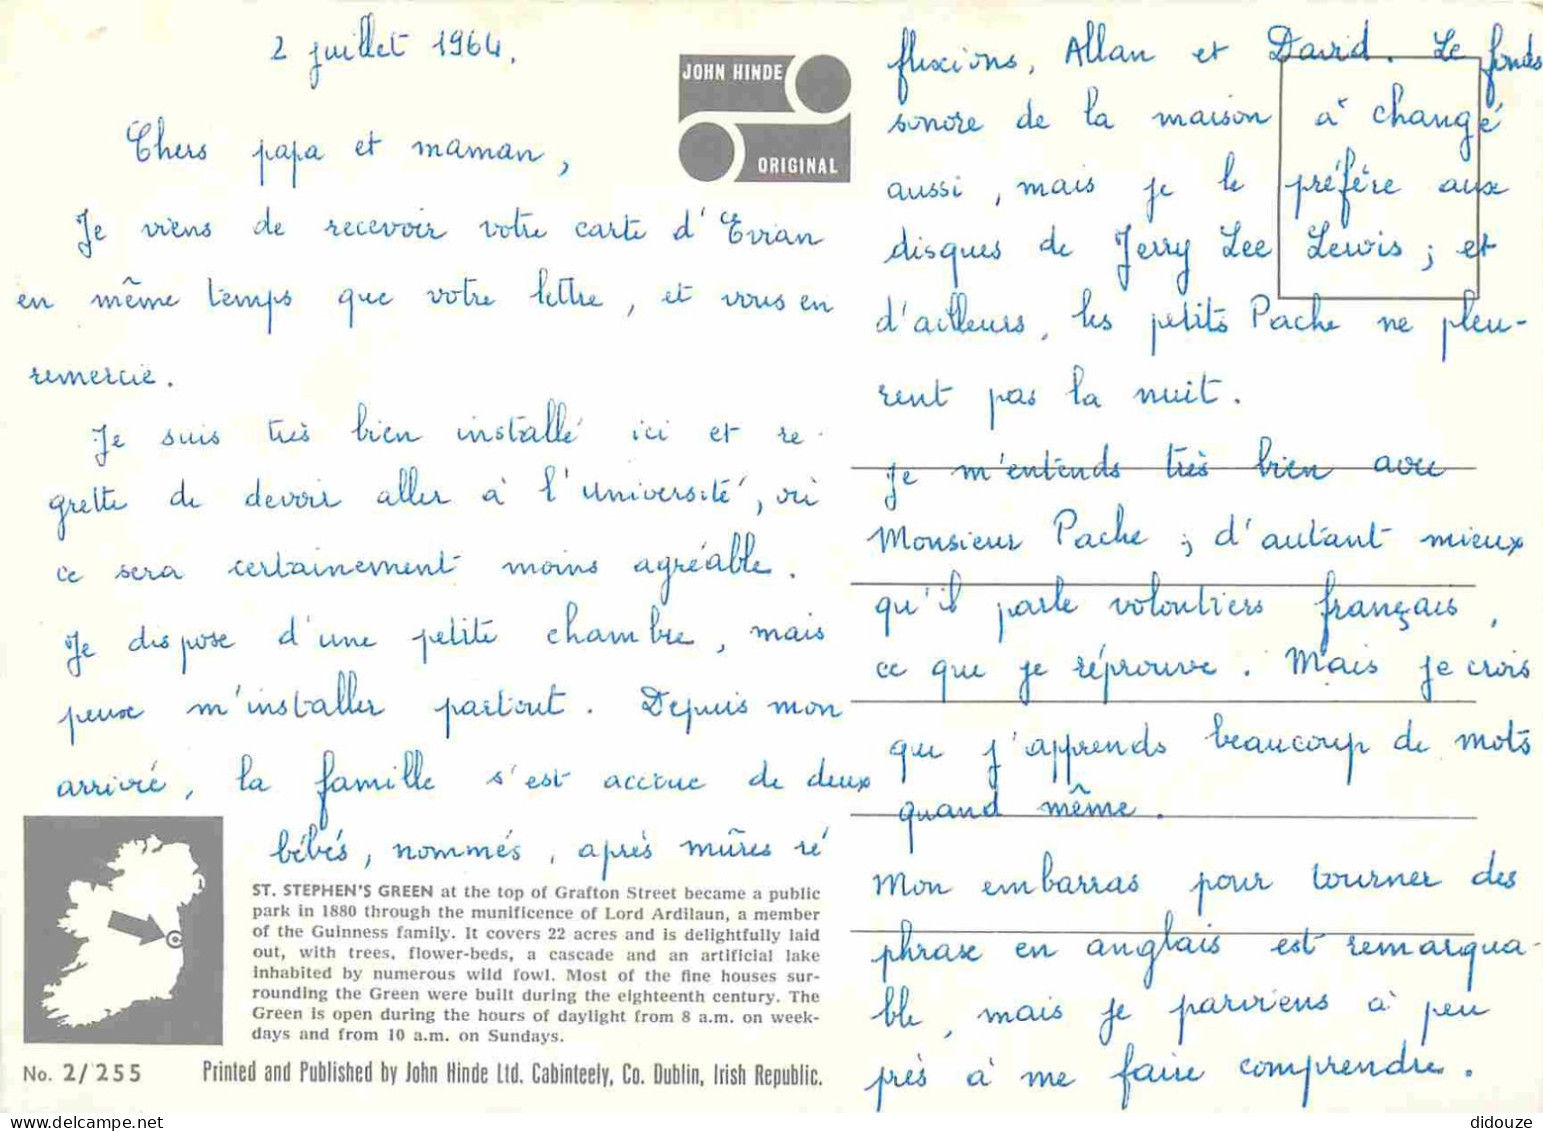 2 juillet 1964.
JOHN HINDE
ORIGINAL
Chers papa et maman,
Je viens de recevoir votre carte d'Evian
en même temps que votre lettre, et vous en
remercie.
Je suis très bien installé ici et re-
grette de devoir aller à l'université, où
ce sera certainement moins agréable.
Je dispose d'une petite chambre, mais
peux m'installer partout. Depuis mon
arrivé, la famille s'est accrue de deux
bébés, nommés, après mûres ré
ST. STEPHEN'S GREEN at the top of Grafton Street became a public
park in 1880 through the munificence of Lord Ardilaun, a member
of the Guinness family. It covers 22 acres and is delightfully laid
out, with trees, flower-beds, a cascade and an artificial lake
inhabited by numerous wild fowl. Most of the fine houses sur-
rounding the Green were built during the eighteenth century. The
Green is open during the hours of daylight from 8 a.m. on week-
days and from 10 a.m. on Sundays.
No. 2/255 Printed and Published by John Hinde Ltd. Cabinteely, Co. Dublin, Irish Republic.
flexions, Allan et David. Le fonds
sonore de la maison a changé
aussi, mais je le préfère aux
disques de Jerry Lee Lewis ; et
d'ailleurs, les petits Pache ne pleu-
rent pas la nuit.
Je m'entends très bien avec
Monsieur Pache ; d'autant mieux
qu'il parle volontiers français,
ce que je réprouve. Mais je crois
que j'apprends beaucoup de mots
quand même.
Mon embarras pour tourner des
phrase en anglais est remarqua-
ble, mais je parviens à peu
près à me faire comprendre.
didouze